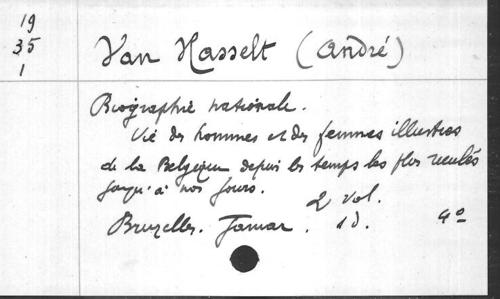 19
35
1
Van Hasselt (André)
Biographie nationale.
Vie des hommes et des femmes illustres
de la Belgique depuis les temps les plus reculés
jusqu'à nos jours.
2 vol.
Bruxelles. Jamar. s d. 4o